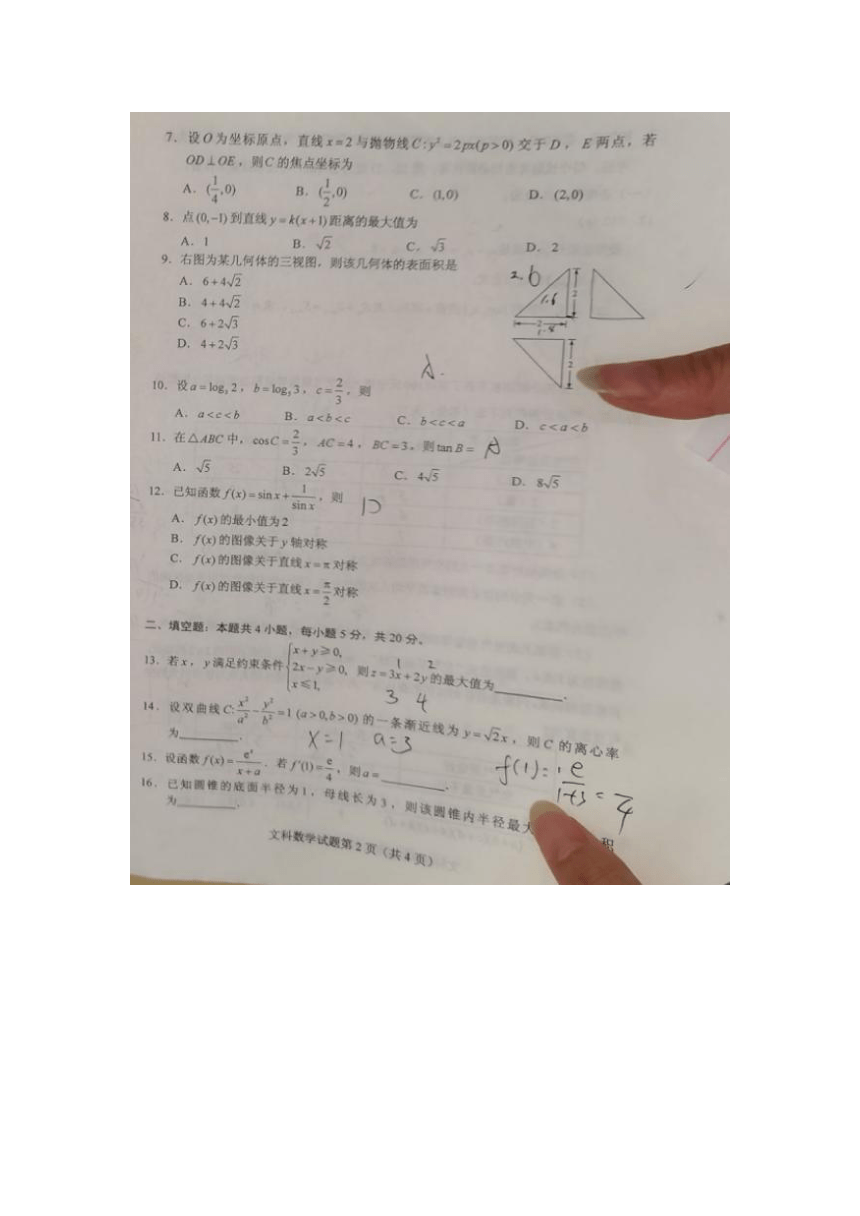 7. 设O为坐标原点，直线x=2与抛物线C:y²=2px(p>0)交于D，E两点，若
OD⊥OE，则C的焦点坐标为
A. (1/4,0) B. (1/2,0) C. (1,0) D. (2,0)
8. 点(0,-1)到直线y=k(x+1)距离的最大值为
A. 1 B. √2 C. √3 D. 2
9. 右图为某几何体的三视图，则该几何体的表面积是
A. 6+4√2
B. 4+4√2
C. 6+2√3
D. 4+2√3
2.6
1.6
2
2
1.8
2
A.
10. 设a=log₃2，b=log₅3，c=2/3，则
A. a<c<b B. a<b<c C. b<c<a D. c<a<b
11. 在△ABC中，cosC=2/3，AC=4，BC=3，则tanB= A
A. √5 B. 2√5 C. 4√5 D. 8√5
12. 已知函数f(x)=sinx+1/sinx，则 D
A. f(x)的最小值为2
B. f(x)的图像关于y轴对称
C. f(x)的图像关于直线x=π对称
D. f(x)的图像关于直线x=π/2对称
二、填空题：本题共4小题，每小题5分，共20分。
13. 若x，y满足约束条件{x+y≥0, 2x-y≥0, x≤1, 则z=3x+2y的最大值为______.
1 2
3 4
14. 设双曲线C:x²/a²-y²/b²=1(a>0,b>0)的一条渐近线为y=√2x，则C的离心率
为______.
x=1 a=3
15. 设函数f(x)=eˣ/(x+a)．若f′(1)=e/4，则a=______.
f(1)= e/(1+3) = 4
16. 已知圆锥的底面半径为1，母线长为3，则该圆锥内半径最大 积
为______.
文科数学试题第2页（共4页）